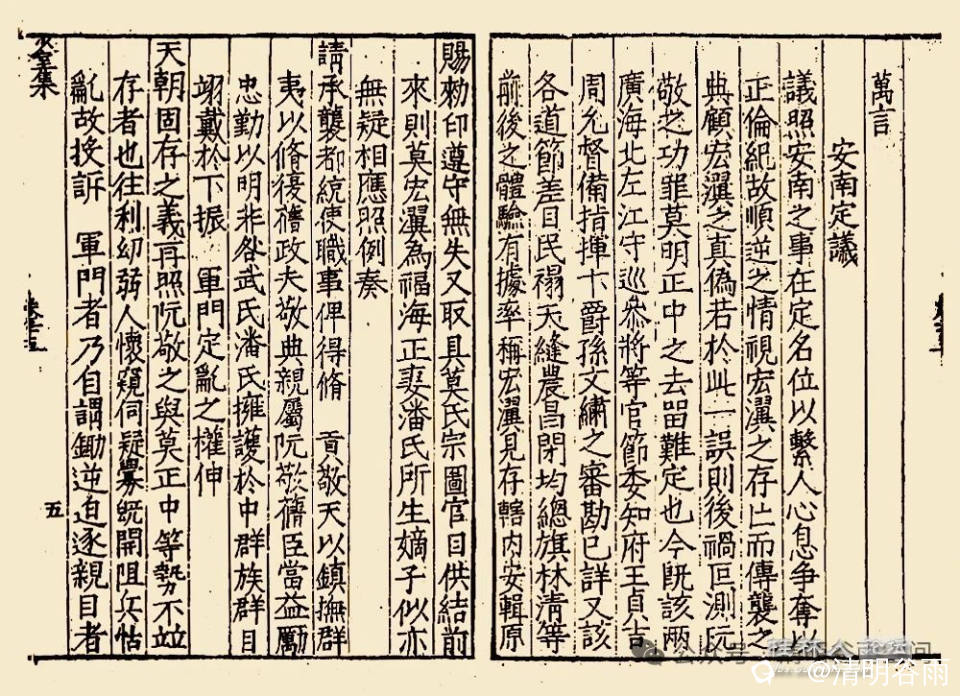 萬言
安南定議
議照安南之事在定名位以繫人心息争奪以
正倫紀故順逆之情視宏瀷之存亡而傳襲之
典顧宏瀷之真偽若於此一誤則後禍叵測阮
敬之功罪莫明正中之去留難定也今既該兩
廣海北左江守巡叅將等官節委知府王貞吉
周允督備指揮卞爵孫文繡之審勘已詳又該
各道節差目民禤天縫農昌閉均總旗林清等
前後之體驗有據率稱宏瀷見存轄内安輯原
賜勑印遵守無失又取具莫氏宗圖官目供結前
來則莫宏瀷為福海正妻潘氏所生嫡子似亦
無疑相應照例奏
請承襲都統使職事俾得脩 貢敬天以鎮撫群
夷以脩復舊政夫敬典親屬阮敬舊臣當益勵
忠勤以明非咎武氏潘氏擁護於中群族群目
翊戴於下振 軍門定亂之權伸
天朝固存之義再照阮敬之與莫正中等勢不並
存者也往利幼弱人懷窺伺疑釁既開阻兵怙
亂故投訴 軍門者乃自謂鋤逆迫逐親目者
五
公众号
@清明谷雨